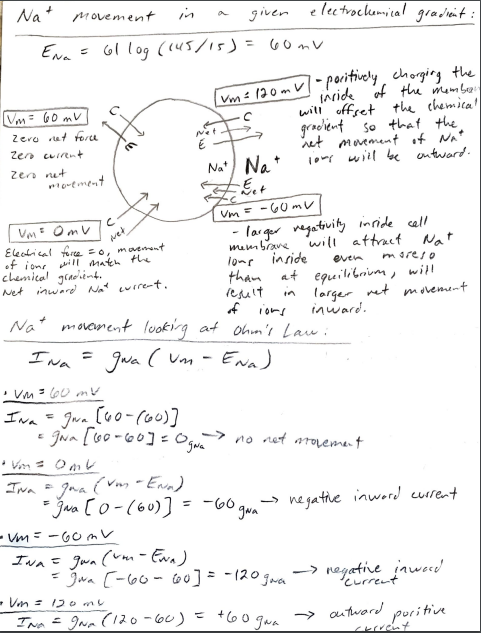 Na⁺ movement in a given electrochemical gradient:
E_Na = 61 log (145/15) = 60 mV
Vm = 120 mV
- positively charging the
inside of the membrane
will offset the chemical
gradient so that the
net movement of Na⁺
ions will be outward.
Vm = 60 mV
Zero net force
Zero current
Zero net
movement
C
E
C
Net
E
Na⁺ Na⁺
E
Net
C
Vm = -60 mV
- larger negativity inside cell
membrane will attract Na⁺
ions inside even moreso
than at equilibrium, will
result in larger net movement
of ions inward.
Vm = 0 mV
C
Net
Electrical force = 0, movement
of ions will match the
chemical gradient.
Net inward Na⁺ current.
Na⁺ movement looking at Ohm's Law:
I_Na = g_Na (Vm - E_Na)
• Vm = 60 mV
I_Na = g_Na [60-(60)]
= g_Na [60-60] = 0 g_Na → no net movement
• Vm = 0 mV
I_Na = g_Na (Vm - E_Na)
= g_Na [0-(60)] = -60 g_Na → negative inward current
• Vm = -60 mV
I_Na = g_Na (Vm - E_Na)
= g_Na [-60-60] = -120 g_Na → negative inward
current
• Vm = 120 mV
I_Na = g_Na (120-60) = +60 g_Na → outward positive
current